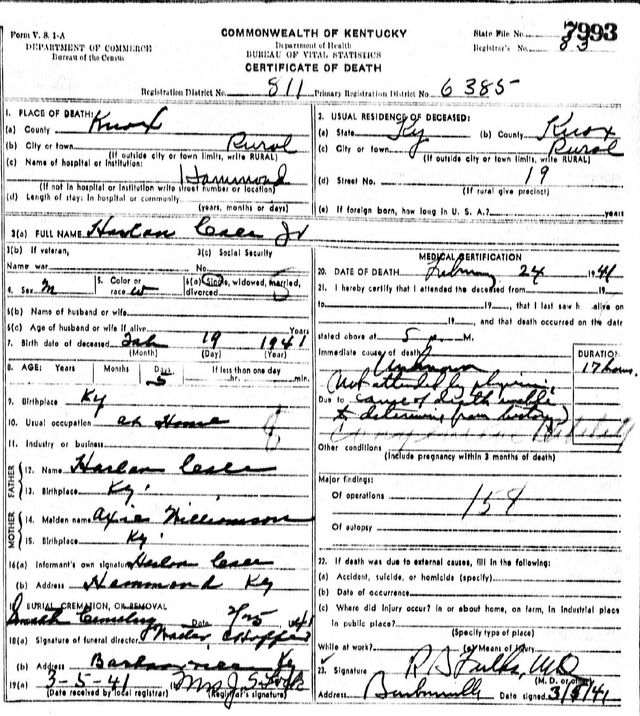 Form V. S. 1-A
DEPARTMENT OF COMMERCE
Bureau of the Census
COMMONWEALTH OF KENTUCKY
Department of Health
BUREAU OF VITAL STATISTICS
CERTIFICATE OF DEATH
State File No. 7993
Registrar's No. 83
Registration District No. 811 Primary Registration District No. 6385
1. PLACE OF DEATH:
(a) County Knox
(b) City or town Rural
(If outside city or town limits, write RURAL)
(c) Name of hospital or institution:
Hammond
(If not in hospital or institution write street number or location)
(d) Length of stay: In hospital or community
(years, months or days)
2. USUAL RESIDENCE OF DECEASED:
(a) State Ky (b) County Knox
(c) City or town Rural
(If outside city or town limits, write RURAL)
(d) Street No. 19
(If rural give precinct)
(e) If foreign born, how long in U. S. A.? years
3(a) FULL NAME Harlan Jr
3(b) If veteran, 3(c) Social Security
Name war No.
4. Sex M 5. Color or race W 6(a) Single, widowed, married, divorced
6(b) Name of husband or wife
6(c) Age of husband or wife if alive Years
7. Birth date of deceased Feb 19 1941
(Month) (Day) (Year)
8. AGE: Years Months Days If less than one day
5 hr. min.
9. Birthplace Ky
10. Usual occupation at Home
11. Industry or business
FATHER
12. Name Harlan
13. Birthplace Ky.
MOTHER
14. Maiden name Axie Williamson
15. Birthplace Ky.
16(a) Informant's own signature Harlan
(b) Address Hammond Ky
17. BURIAL, CREMATION, OR REMOVAL
Cemetery Date 2/25 1941
18(a) Signature of funeral director
(b) Address Barbourville Ky
19(a) 3-5-41 Mrs J. S.
(Date received by local registrar) (Registrar's signature)
MEDICAL CERTIFICATION
20. DATE OF DEATH February 24 1941
21. I hereby certify that I attended the deceased from 19
to 19, that I last saw h alive on
19, and that death occurred on the date
stated above at 5 p. M.
Immediate cause of death DURATION
Unknown 17 hours.
Not attended by physician,
Due to cause of death unable
to determine from history
Other conditions
(Include pregnancy within 3 months of death)
Major findings:
Of operations 158
Of autopsy
22. If death was due to external causes, fill in the following:
(a) Accident, suicide, or homicide (specify)
(b) Date of occurrence
(c) Where did injury occur? In or about home, on farm, in industrial place
in public place?
(Specify type of place)
While at work? (e) Means of injury
23. Signature R S Fulks, MD
(M. D. or other)
Address Barbourville Date signed 3/5/41